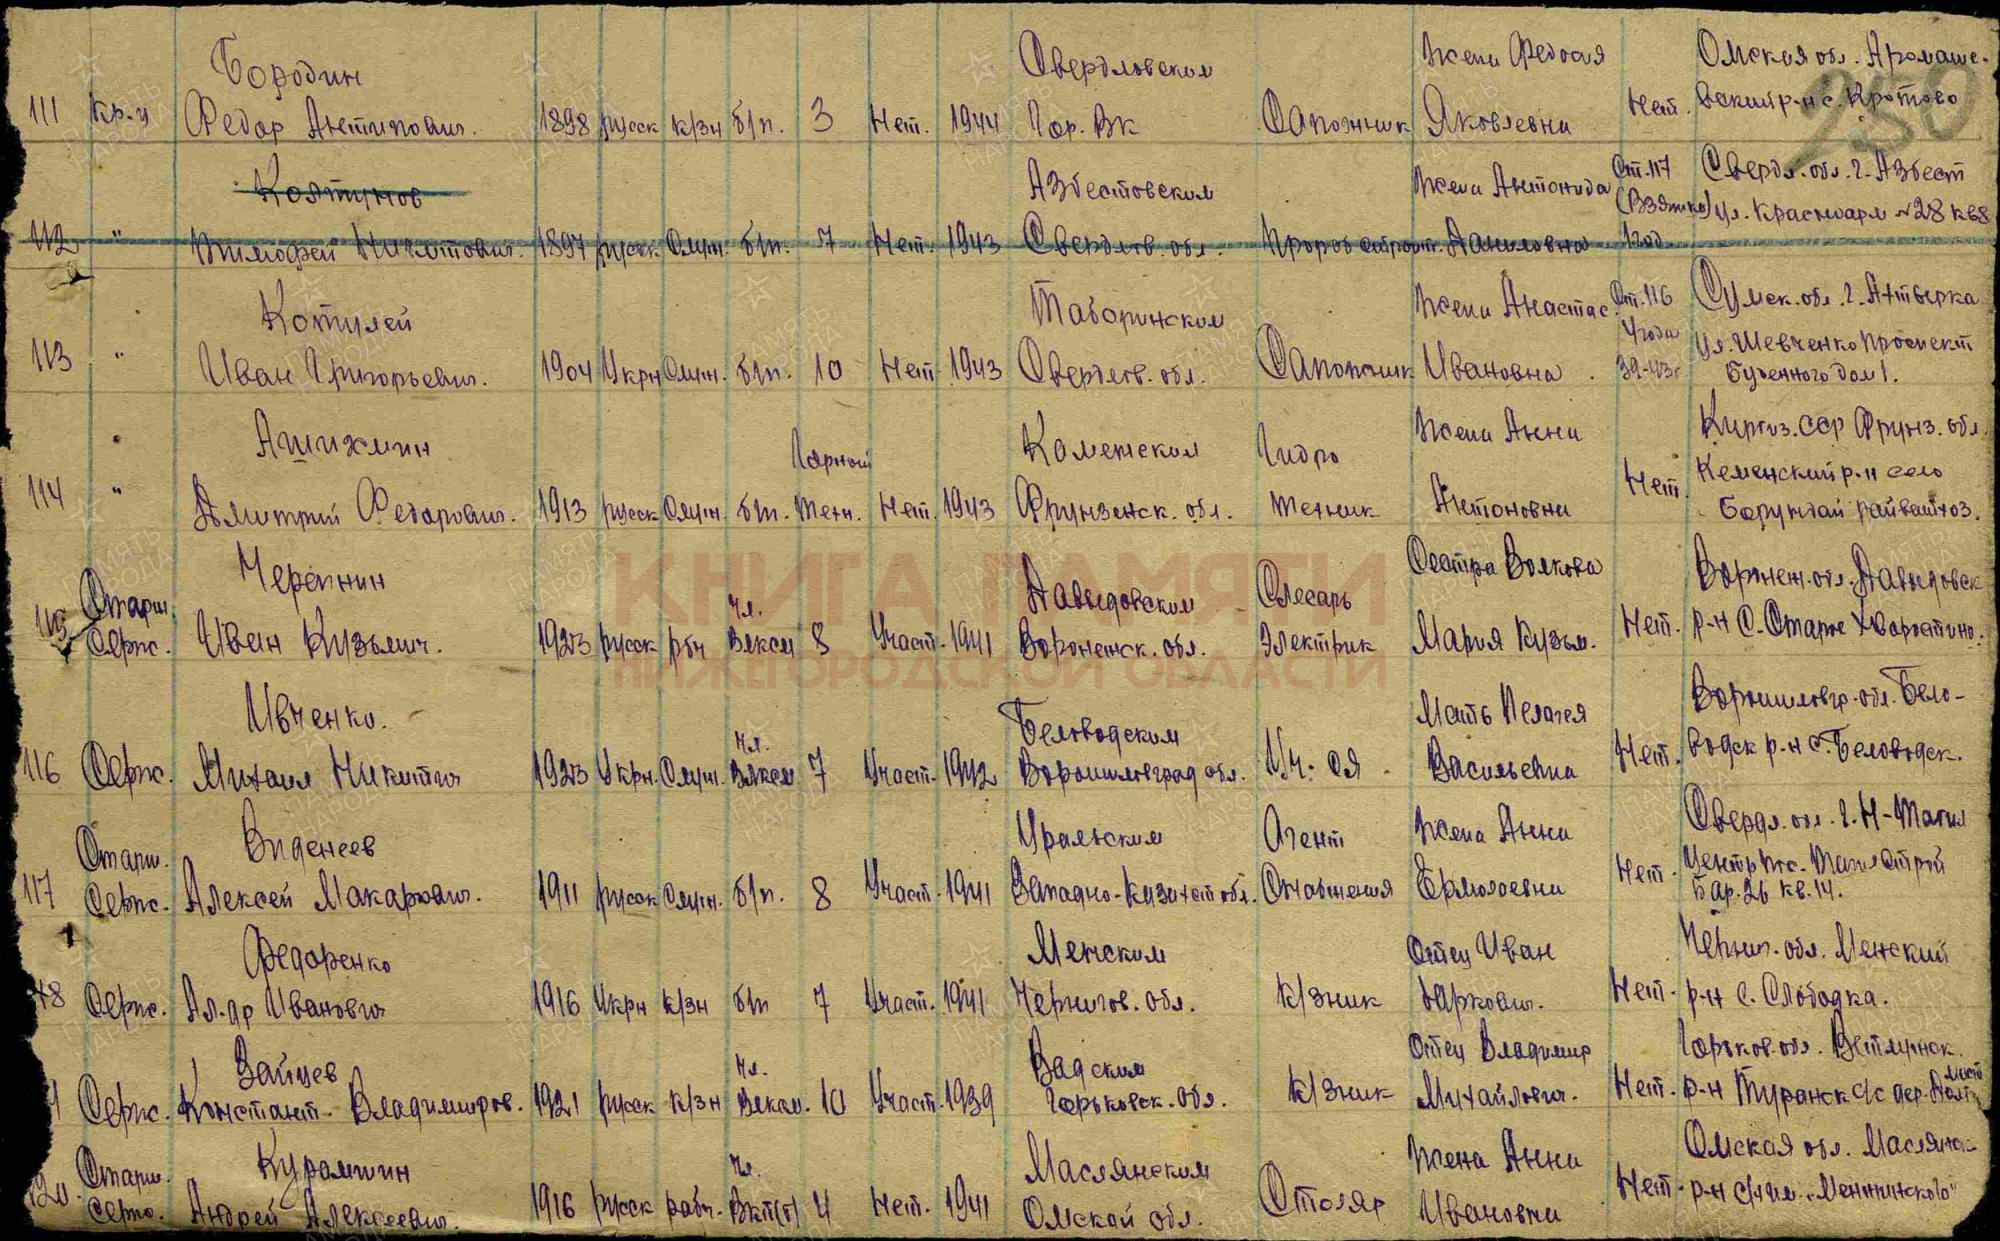 Бородин Свердловским Жена Федосия Омская обл. Аромаше-
111 Кр-ц Федор Антипович. 1898 русск к/зн б/п. 3 Нет. 1944 Гор. ВК Сапожник Яковлевна Нет. вский р-н с. Кротово
250
Колтунов Азбестовским Жена Антонида Ст. 117 Свердл. обл. г. Азбест
(Взятка) ул. Красноарм №28 кв8
112 " Тимофей Никитович. 1897 русск Служ. б/п. 7 Нет. 1943 Свердлов. обл. Прораб строит. Даниловна 1 год
Котулей Таборинским Жена Анастас. Ст. 116 Сумск. обл. г. Ахтырка
4 года ул. Шевченко проспект
113 " Иван Григорьевич. 1904 Укрн Служ. б/п. 10 Нет 1943 Свердлов. обл. Сапожник Ивановна 39-43г Буденного дом 1.
Ашихмин Горный Кеменским Гидро Жена Анна Киргиз. ССР Фрунз. обл.
114 " Дмитрий Федорович. 1913 русск Служ. б/п. Техн. Нет. 1943 Фрунзенск. обл. техник Антоновна Нет. Кеменский р-н село
Борулдай райвайхоз.
Черепнин Давыдовским Слесарь Сестра Волкова Воронеж. обл. Давыдовск
115 Старш. Серж. Иван Кузьмич. 1923 русск рбч Чл. Влксм 8 Участ. 1941 Воронежск. обл. Электрик Мария Кузьм. Нет. р-н С. Старое Хворостино.
Ивченко. Беловодским Мать Пелагея Ворошиловгр. обл. Бело-
116 Серж. Михаил Никитич 1923 Укрн. Служ. Чл. Влксм 7 Участ. 1942 Ворошиловград обл. Уч-ся Васильевна Нет. водск р-н С. Беловодск.
Виденеев Уральским Агент Жена Анна Свердл. обл. г. Н-Тагил
117 Старш. Серж. Алексей Макарович. 1911 русск Служ. б/п. 8 Участ. 1941 Западно-Казахст обл. Снабжения Ермолаевна Нет. Центр Пос. Тагилстрой
Бар. 26 кв. 14.
Федоренко Менским Отец Иван Черниг. обл. Менский
118 Серж. Ал-др Иванович 1916 Укрн к/зн б/п 7 Участ. 1941 Чернигов. обл. К/зник Маркович. Нет. р-н с. Слободка.
Зайцев Вадским Отец Владимир Горьков. обл. Ветлужск.
Серж. Константин. Владимиров. 1921 русск к/зн Чл. Влксм. 10 Участ. 1939 Горьковск. обл. К/зник Михайлович. Нет. р-н Туранск с/с дер.
Курамшин Маслянским Жена Анна Омская обл. Маслянск
120. Старш. Серж. Андрей Алексеевич. 1916 русск рабч. Чл. Вкп(б) 4 Нет. 1941 Омской обл. Столяр Ивановна Нет. р-н с/х им. "Менжинского"
КНИГА ПАМЯТИ
НИЖЕГОРОДСКОЙ ОБЛАСТИ
ПАМЯТЬ НАРОДА